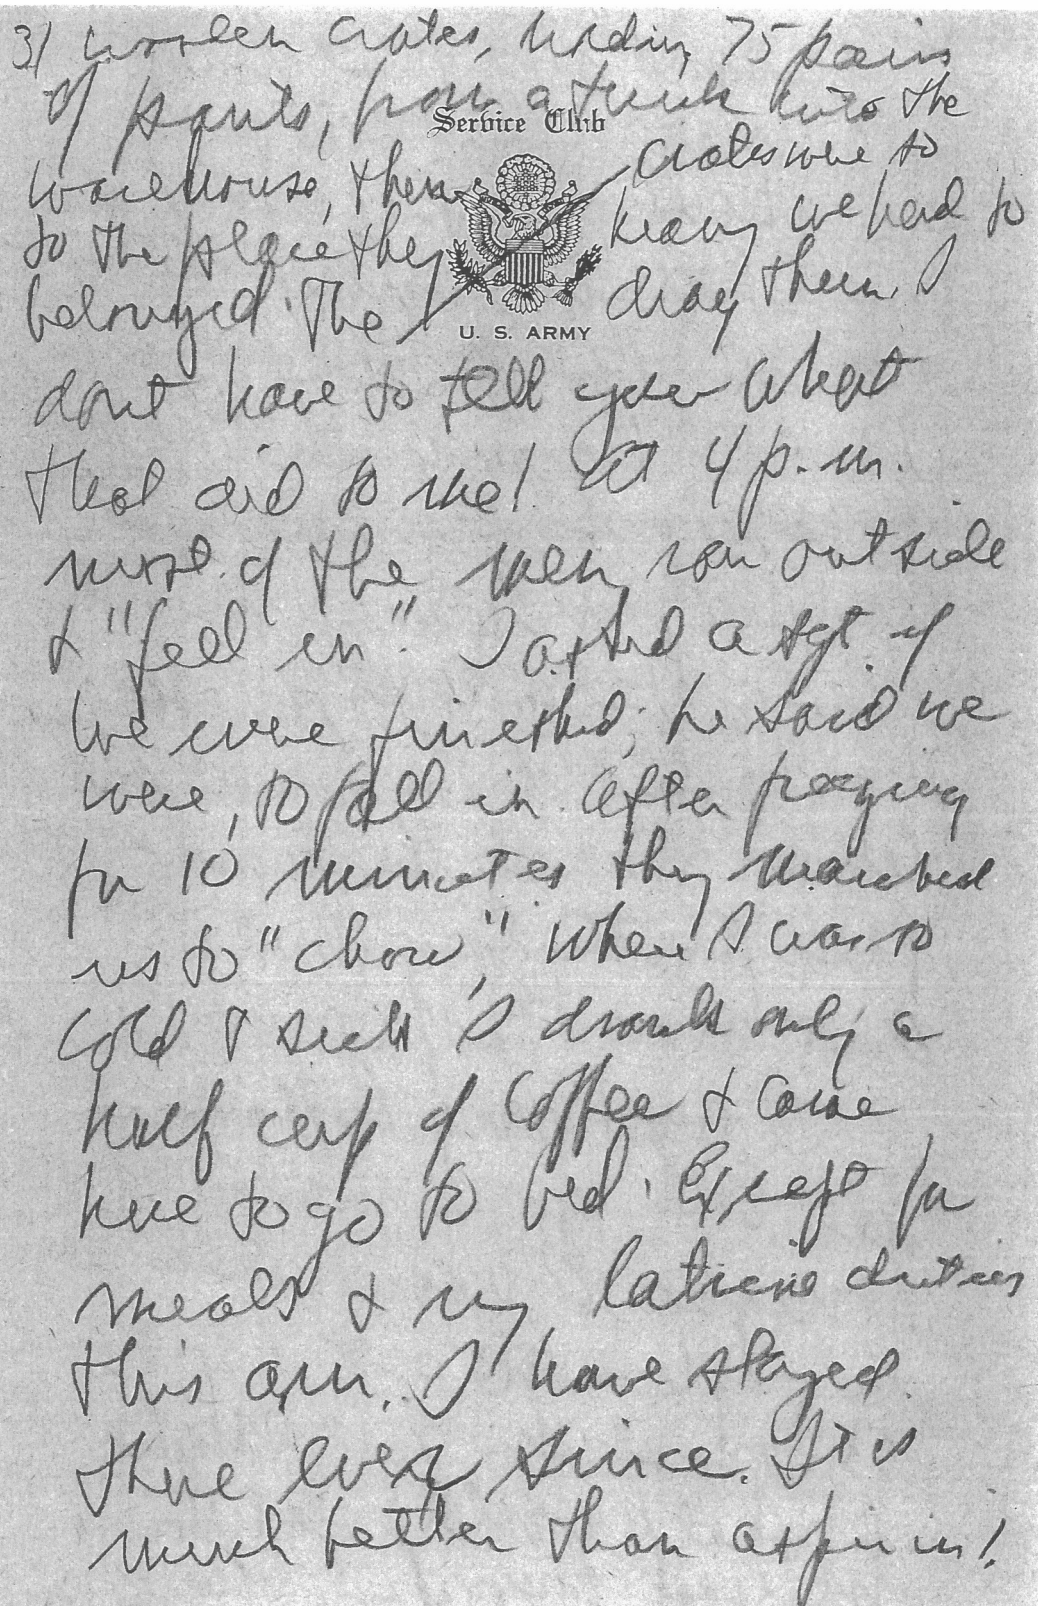 3/ wooden crates, holding 75 pairs
of pants, from a truck into the
Service Club
warehouse, then
to the place they
belonged. The
crates were so
heavy we had to
drag them. I
U. S. ARMY
dont have to tell you what
that did to me! At 4 p.m.
most of the men ran outside
& "fell in". I asked a sgt. if
we were finished; he said we
were, to fall in. After freezing
for 10 minutes they marched
us to "chow," where I was so
cold & sick I drank only a
half cup of coffee & came
here to go to bed. Except for
meals & my latrine duties
this a.m. I have stayed
there ever since. It is
much better than aspirin!